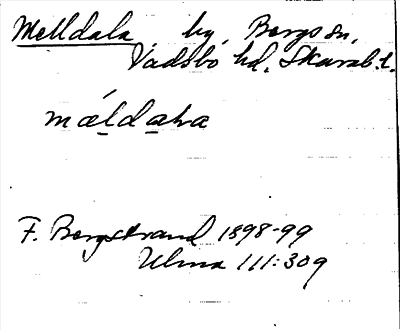 Melldala by, Bergs sn,
Vadsbo hd, Skarab.l.
máldaha
F. Bergstrand 1898-99
Ulma 111:309